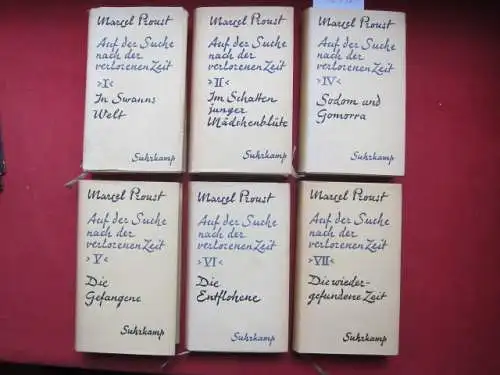 Marcel Proust
Auf der Suche
nach der
verlorenen Zeit
>I<
In Swanns
Welt
Suhrkamp
Marcel Proust
Auf der Suche
nach der
verlorenen Zeit
>II<
Im Schatten
junger
Mädchenblüte
Suhrkamp
Marcel Proust
Auf der Suche
nach der
verlorenen Zeit
>IV<
Sodom und
Gomorra
Suhrkamp
Marcel Proust
Auf der Suche
nach der
verlorenen Zeit
>V<
Die
Gefangene
Suhrkamp
Marcel Proust
Auf der Suche
nach der
verlorenen Zeit
>VI<
Die
Entflohene
Suhrkamp
Marcel Proust
Auf der Suche
nach der
verlorenen Zeit
>VII<
Die wieder-
gefundene Zeit
Suhrkamp